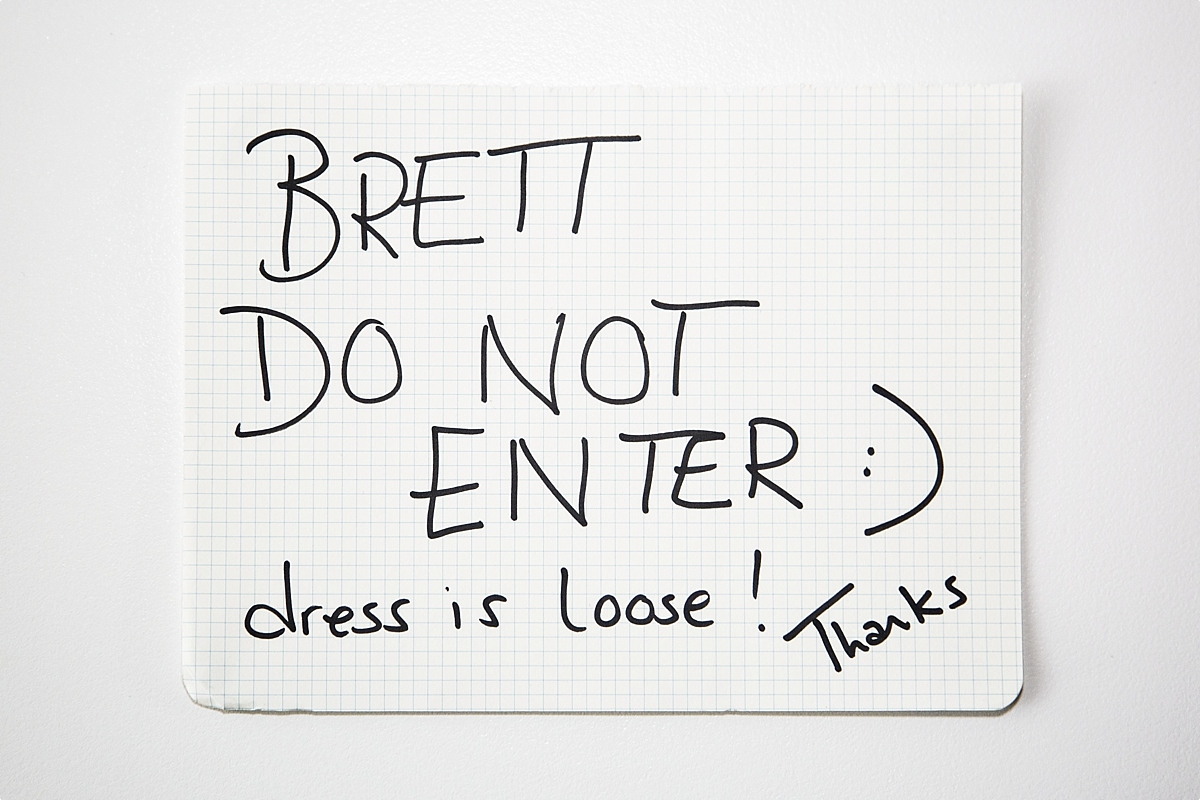 BRETT
DO NOT
ENTER :)
dress is loose! Thanks